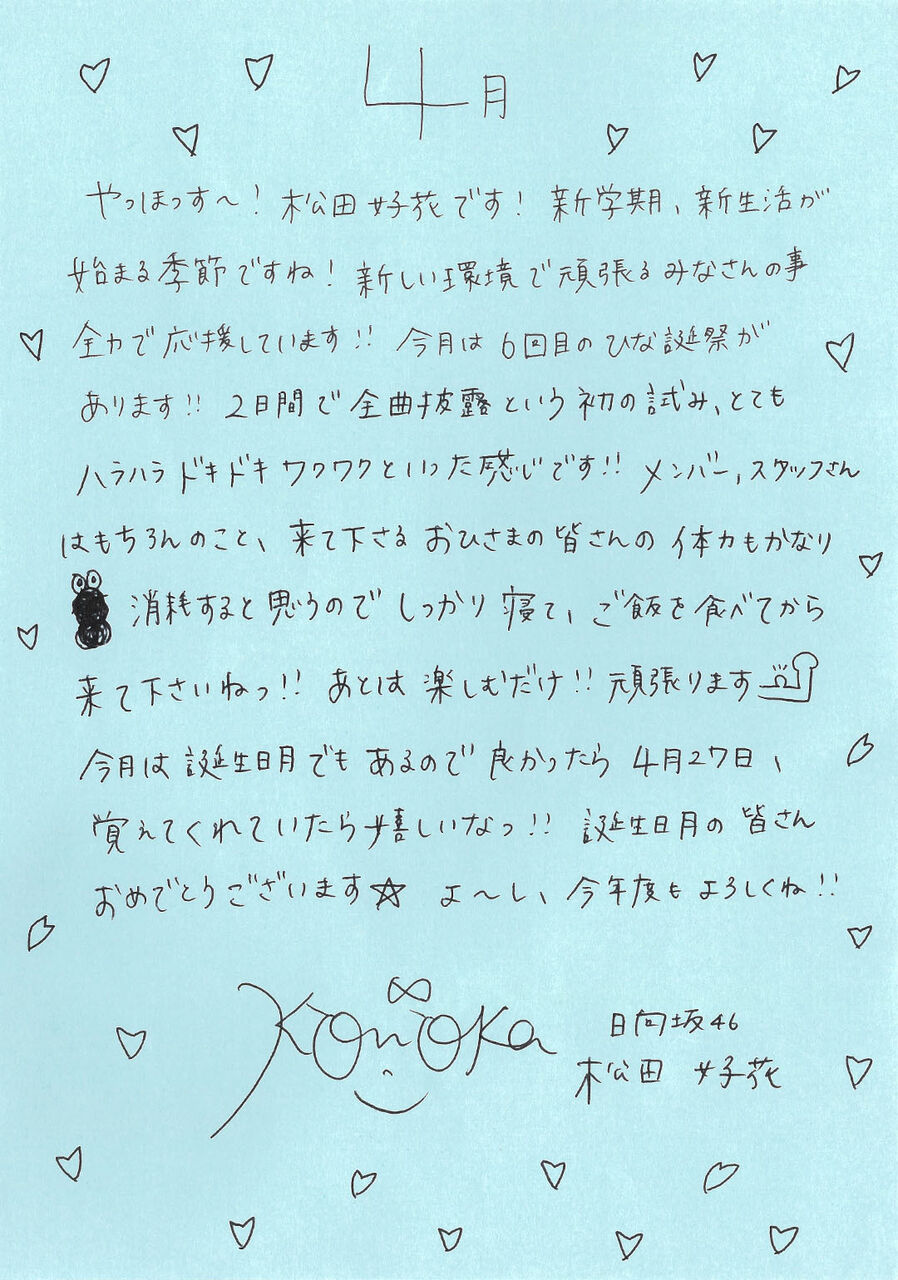 4月
やっほっす〜! 松田好花です! 新学期、新生活が
始まる季節ですね! 新しい環境で頑張るみなさんの事
全力で応援しています!! 今月は6回目のひな誕祭が
あります!! 2日間で全曲披露という初の試み、とても
ハラハラドキドキワクワクといった感じです!! メンバー,スタッフさん
はもちろんのこと、来て下さるおひさまの皆さんの体力もかなり
消耗すると思うのでしっかり寝て、ご飯を食べてから
来て下さいねっ!! あとは楽しむだけ!! 頑張ります
今月は誕生日月でもあるので良かったら4月27日、
覚えてくれていたら嬉しいなっ!! 誕生日月の皆さん
おめでとうございます☆ よ〜し、今年度もよろしくね!!
Konoka
日向坂46
松田 好花